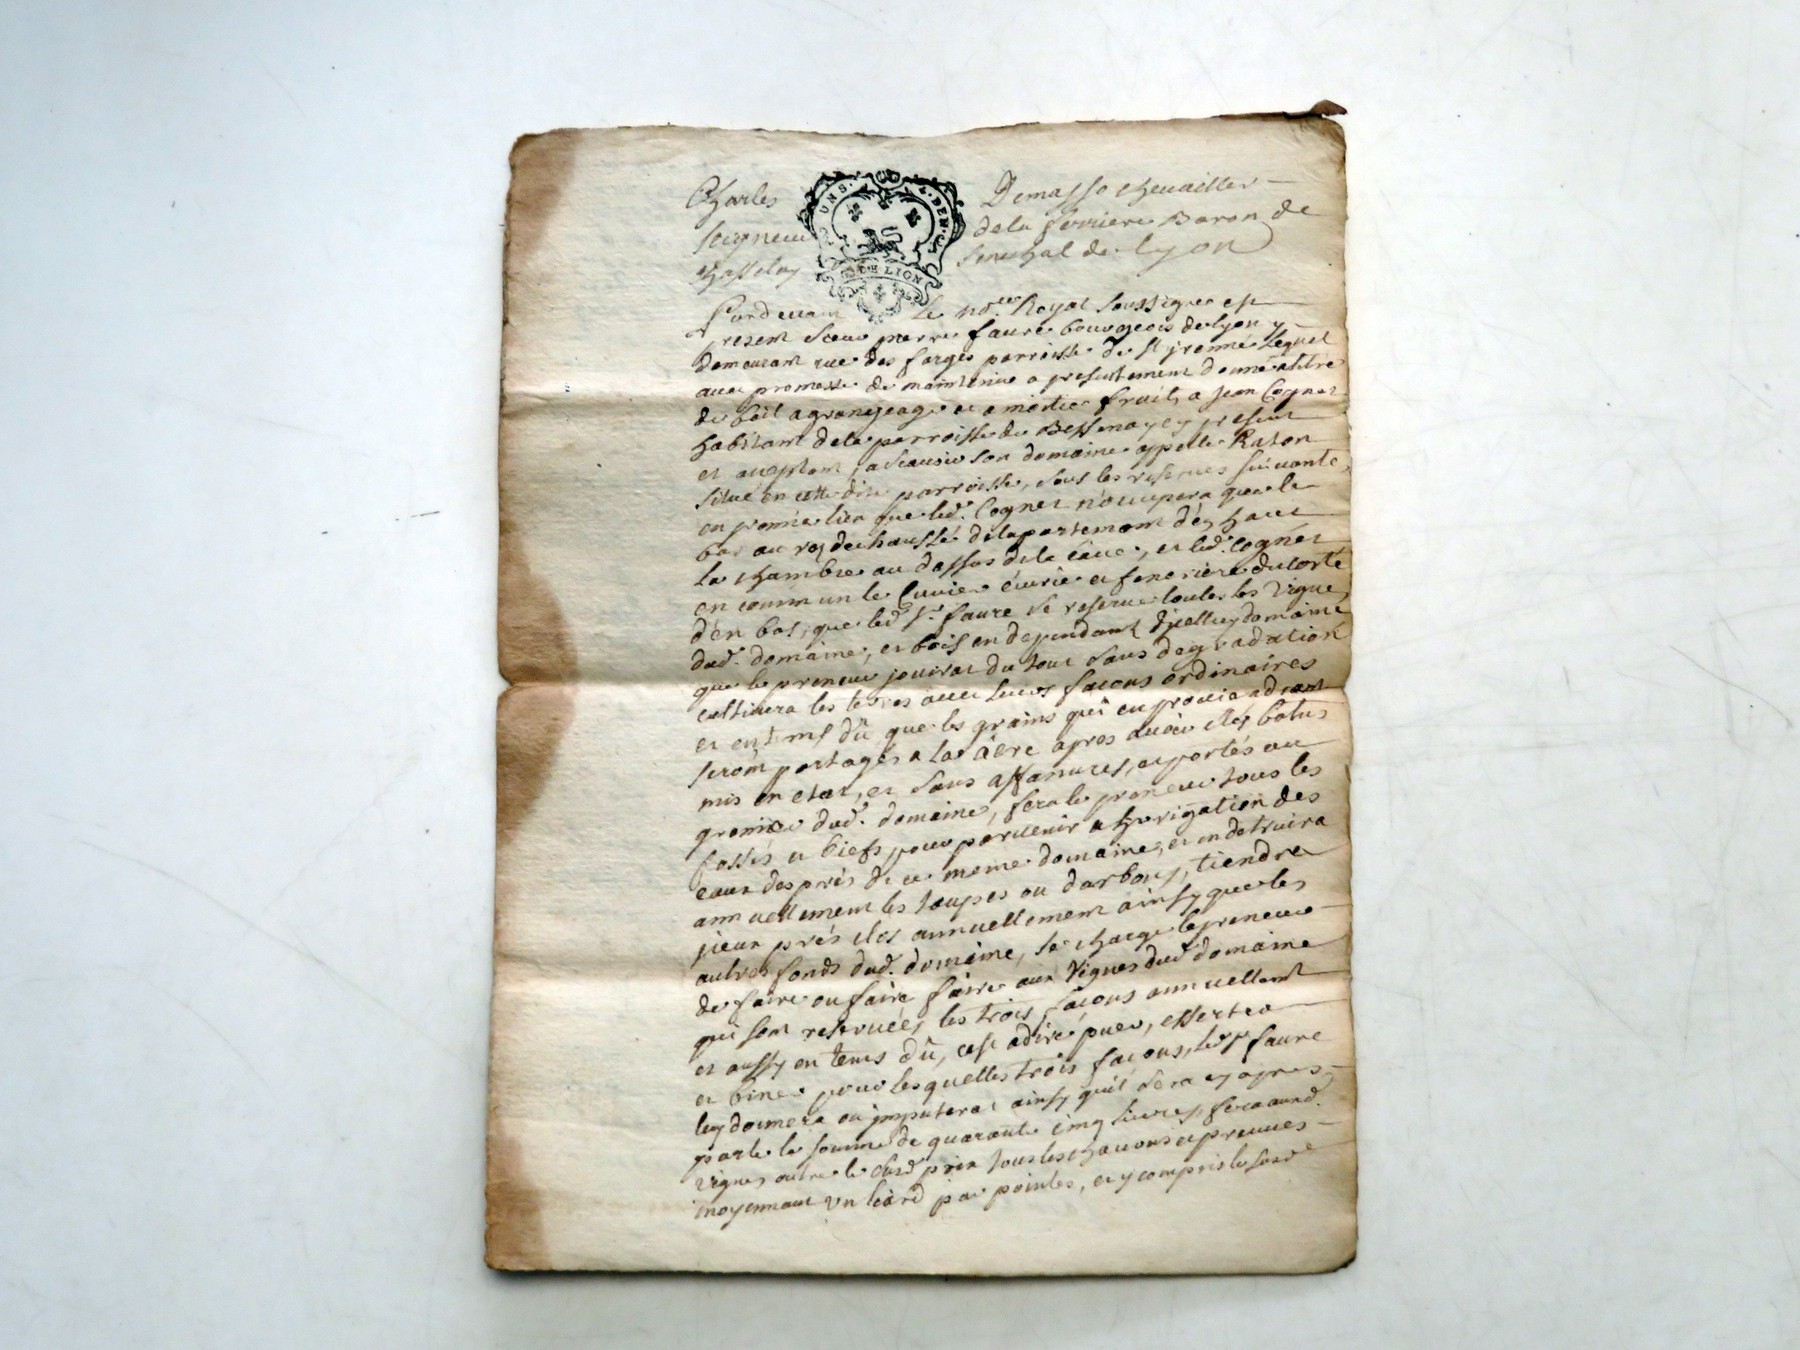 Charles Demasso chevailler
seigneur dela ferriere Baron de
chasselay senechal de Lyon
UN S. 4. DEN.
DE LION
Pardevant le no.re Royal soussigné est
present sieur pierre faure bourgeois de lyon y
demeurant rue des forges parroisse de st
avec promesse de maintenir a presentement donné a titre
de bail a grangeage et a moitié fruits, a jean Cognet
habitant dela parroisse de Bessenay cy present
et aceptant, ascauoir son domaine appellé Raton
situé en cette ditte parroisse, sous les reserues suiuantes,
en premier lieu que led. Cognet n'occupera que le
bas au rez de chaussé delapartement d'en haut
la chambre au dessus dela caue, et led. Cognet
en commun le Cuvier écurie et feneriere du costé
d'en bas, que led. sr. faure se reserue toutes les vignes
dud. domaine, et bois en dependant d'jcelluy domaine
que le preneur jouirat du tout sans degradation
cultiuera les terres avec leurs façons ordinaires
et en tems dû que les grains qui en prouiendront
seront partagés a la aire apres auoir étés batus
mis en etat, et sans affanures, et portés au
grenier dud. domaine, fera le preneur tous les
fossés et biefs pour paruenir a l'jrrigation des
eaux des prés de ce meme domaine, et en detruira
annuellement les taupes ou darbons, tiendra
jceux prés clos annuellement ainsy que les
autres fonds dud. domaine, se charge le preneur
de faire ou faire faire aux vignes dud. domaine
qui sont reseruées, les trois façons annuellement
et aussy en tems dû, cest adire, puer, essertir
et biner pour lesquelles trois façons, led. sr faure
luy donnera ou jmputera ainsy quil sera cy apres
parlé la somme de quarante cinq liures, fera aux d.
vignes outre le susd. prix tous les chauons et preuues
moyennant un liard par pointes, et y compris le susd.